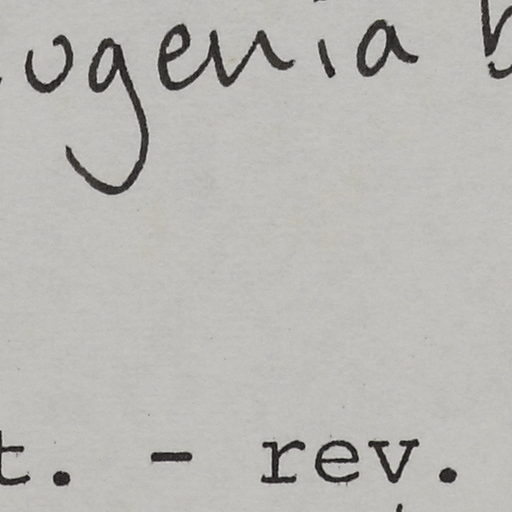 ugenia
t. - rev.